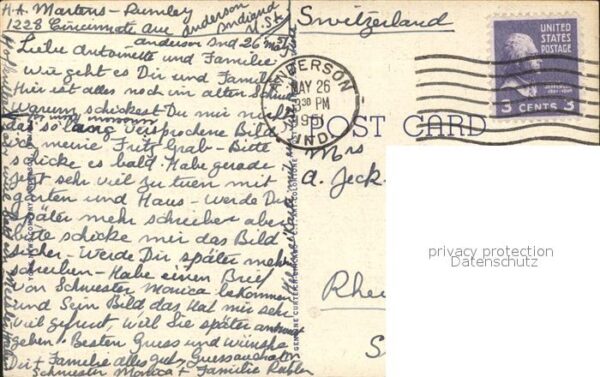 H.A. Martens-Rumley
1228 Cincinnati Ave Anderson
Indiana
U.S.A.
Anderson Ind 26 May
Liebe Antoinette und Familie
Wie geht es Dir und Familie
Hier ist alles noch im alten
Warum schickest Du mir nicht
das so lang versprochene Bild
ich meine Fritz Grab - Bitte
schicke es bald. Habe gerade
jetzt sehr viel zu tuen mit
garten und Haus - Werde Dir
später mehr schreiben aber
bitte schicke mir das Bild
sicher. - Werde Dir später mehr
schreiben - Habe einen Brief
von Schwester Monica bekommen
und Sein Bild das Hat mir sehr
viel gefreut, Will Sie später antwort
geben. Besten Gruss und wünsche
Dir + Familie alles gute Gruss auch an
Schwester Monica + Familie
Switzerland
ANDERSON
MAY 26
3 30 PM
1951
IND.
UNITED
STATES
POSTAGE
3 CENTS 3
POST CARD
Mrs
A. Jeck
Rhe
S
privacy protection
Datenschutz